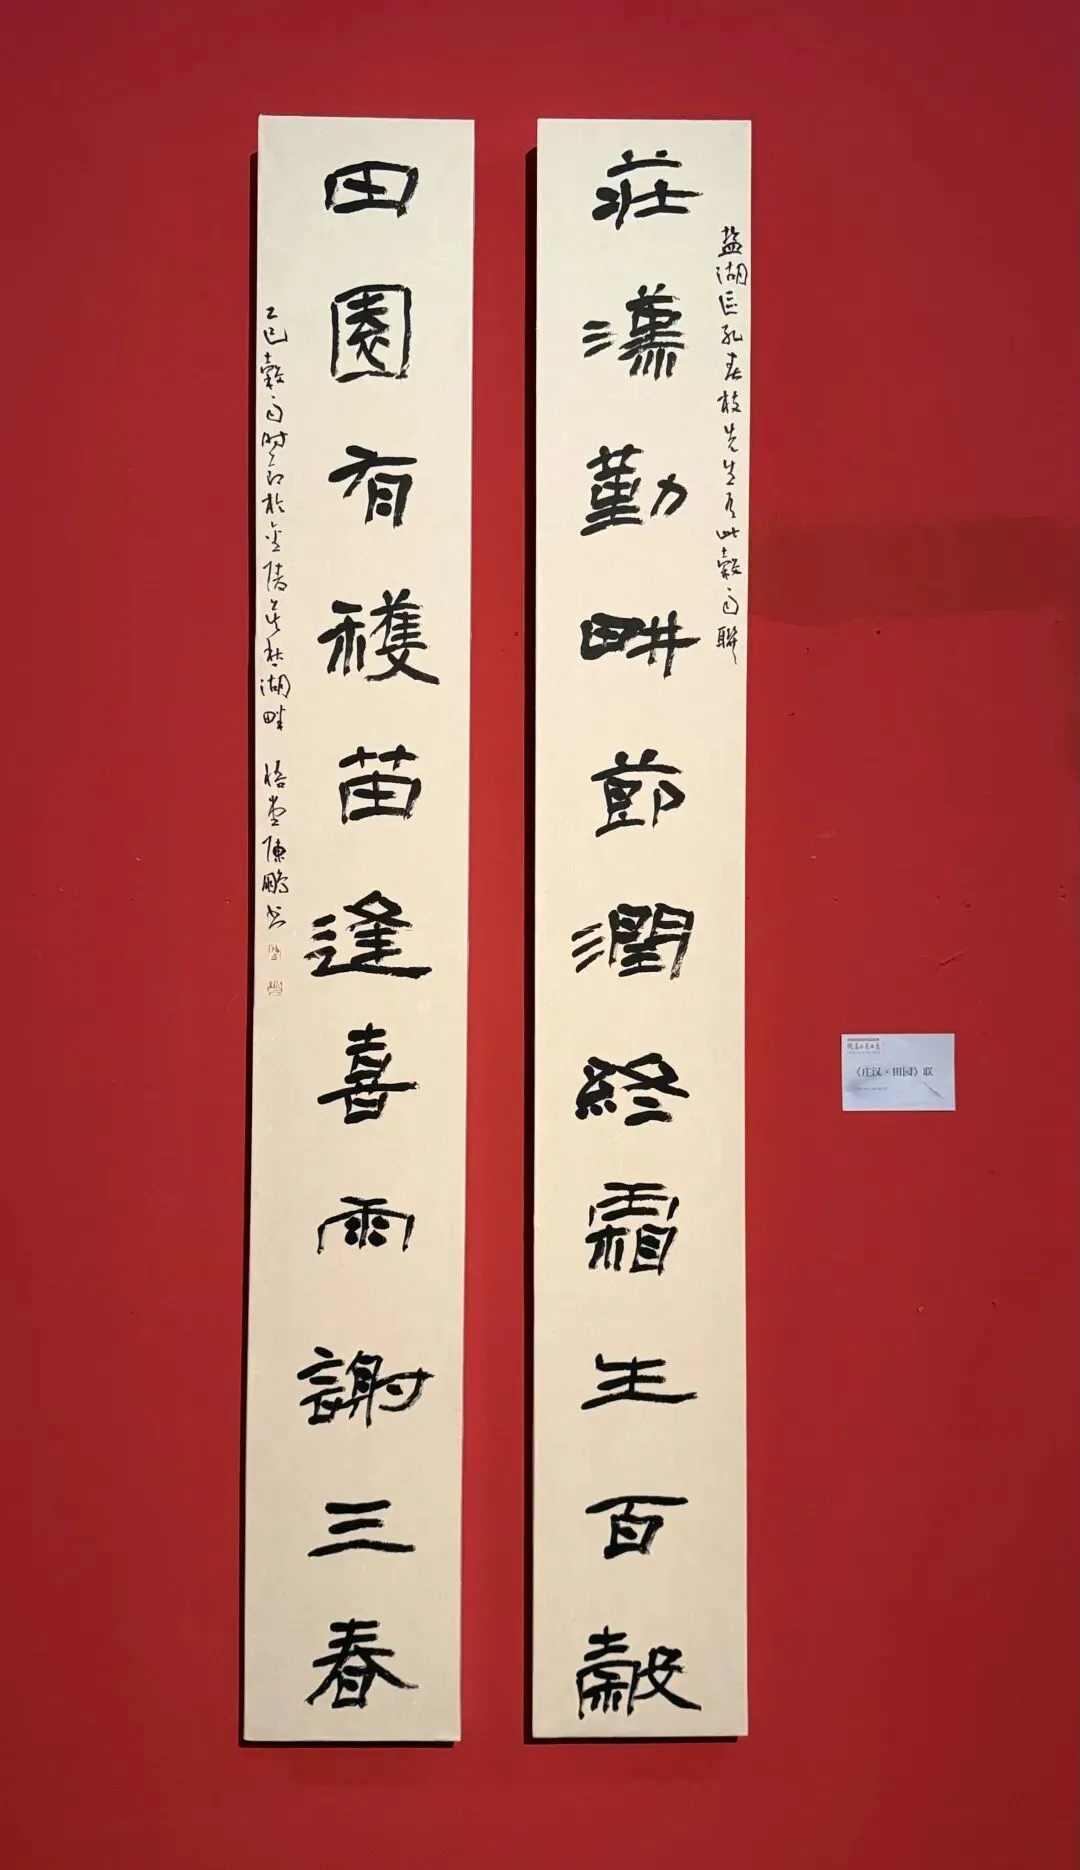 盐湖区孔春枝先生有此穀雨聯
莊漢勤畊節潤終霜生百穀
田園有穫苗逢喜雨謝三春
乙巳穀雨时节於金陵莫愁湖畔 悟堂陳鵬书
《庄汉·田园》联